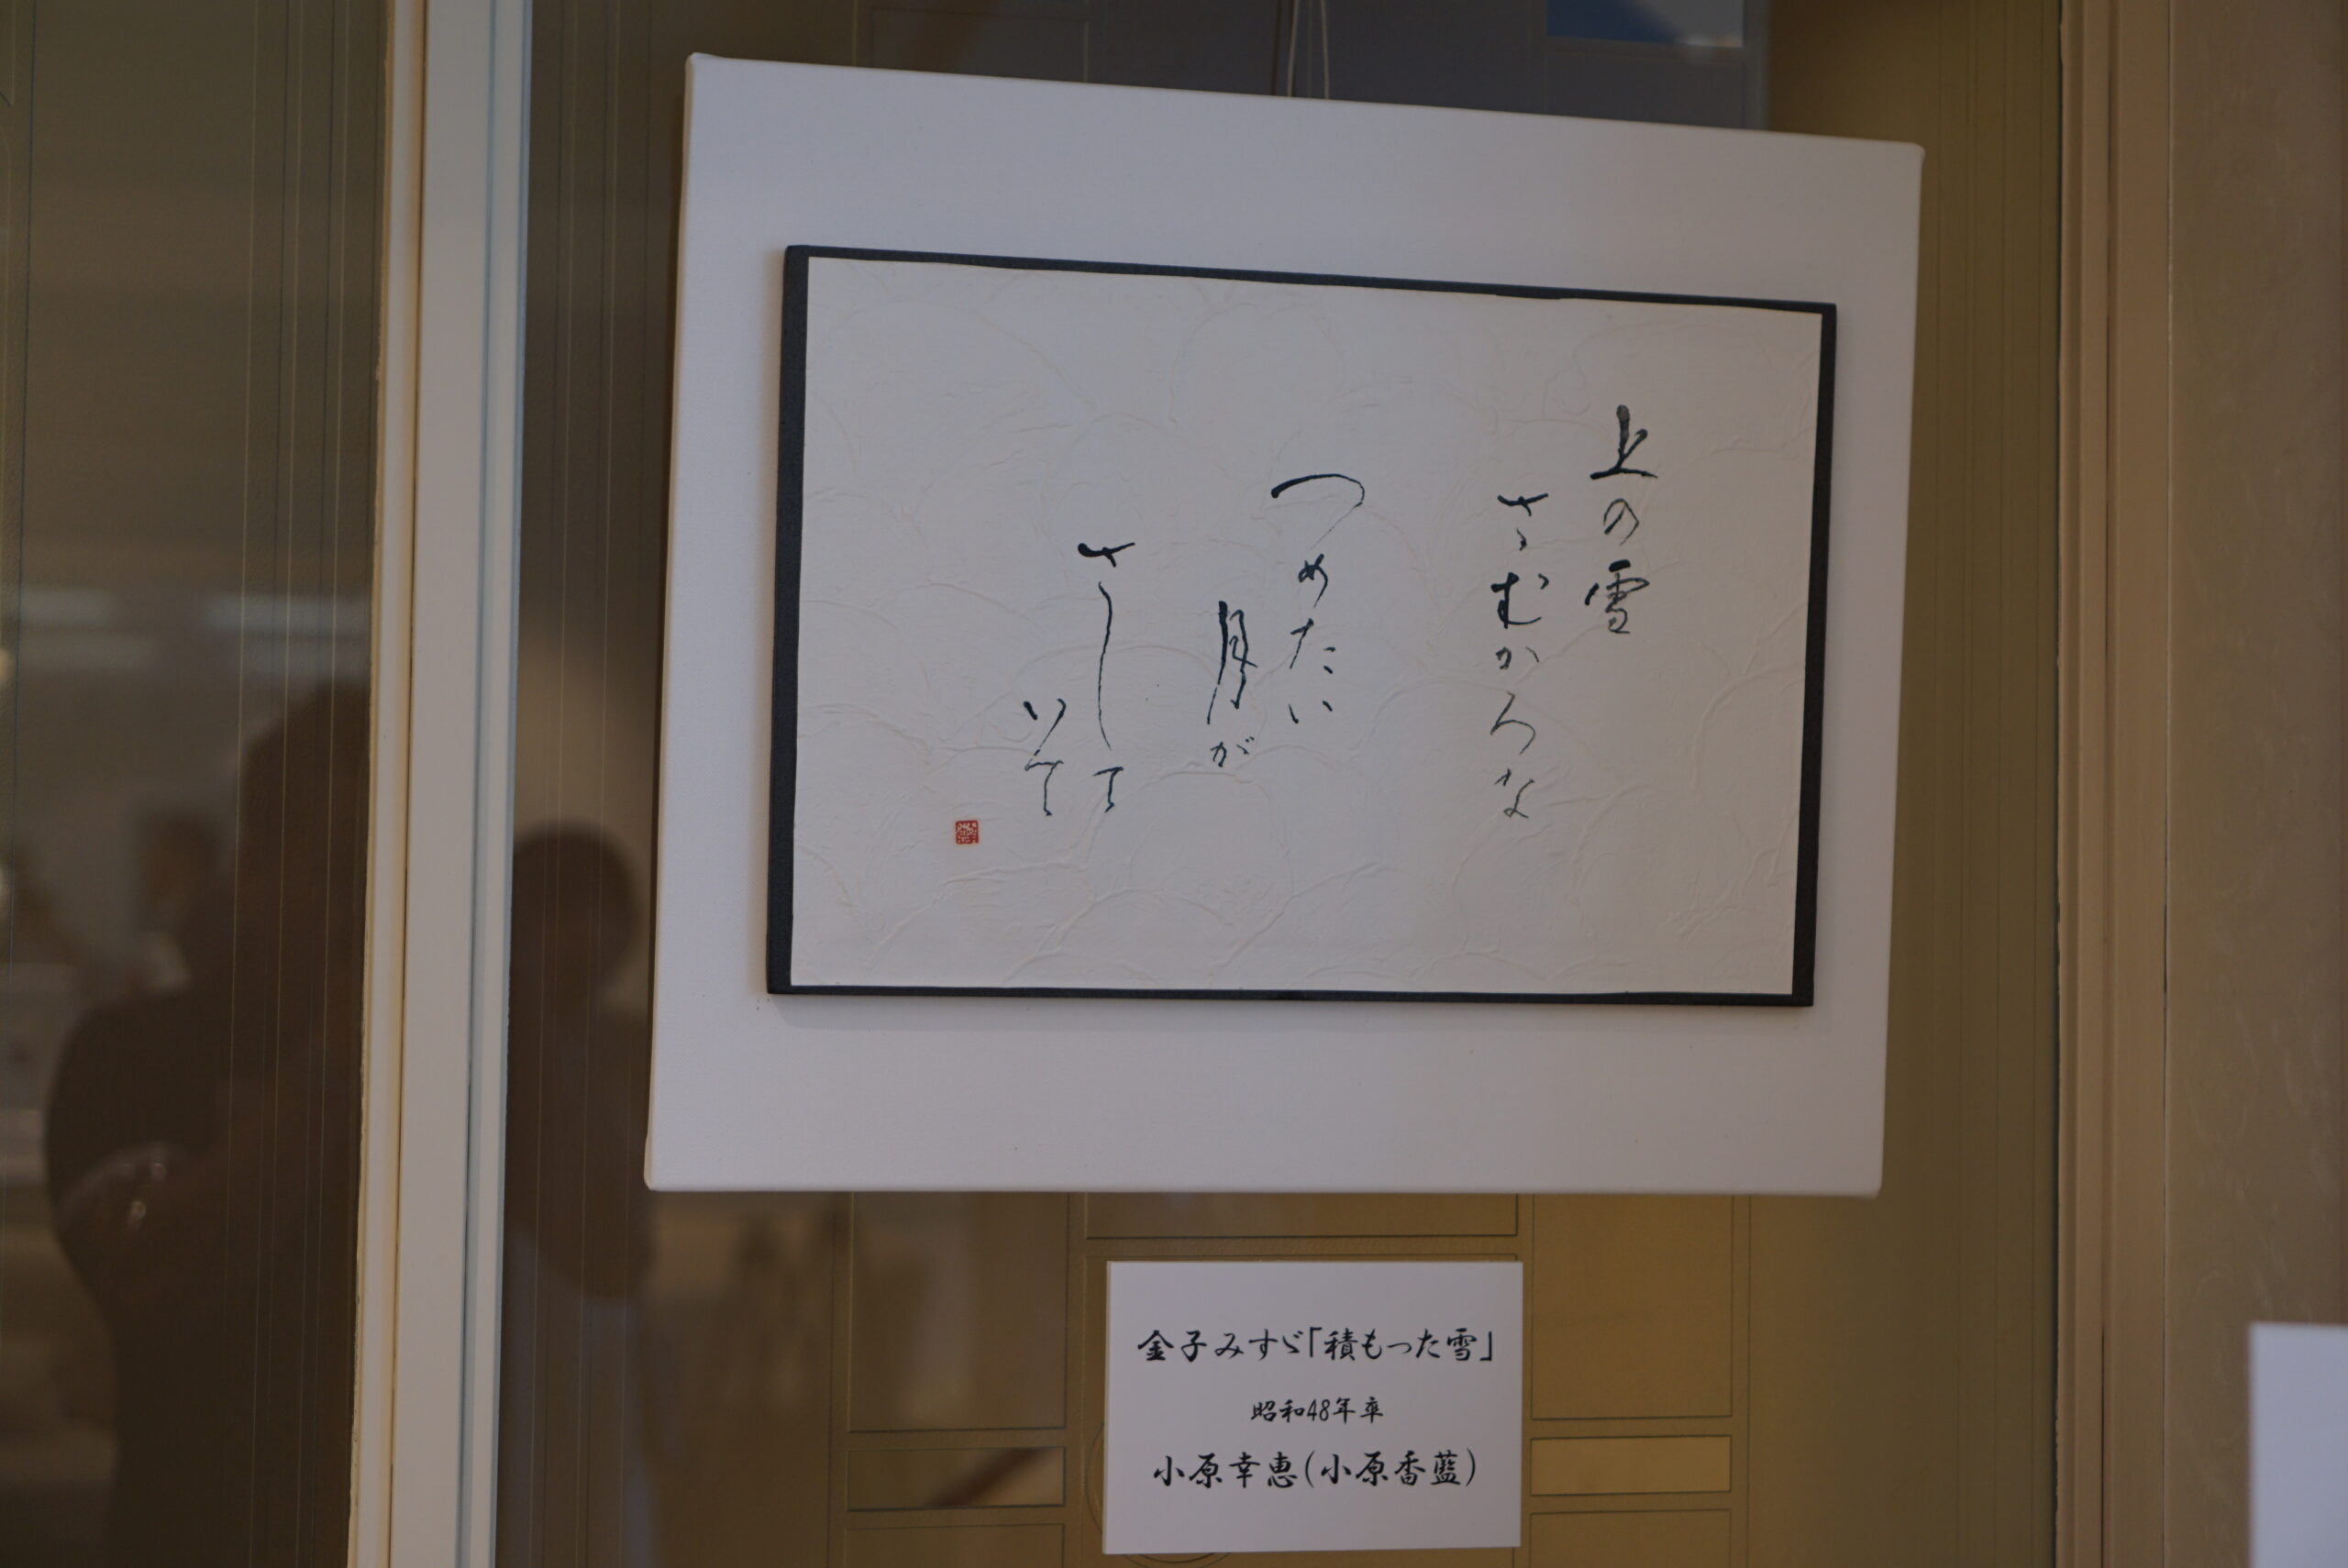 上の雪
さむかろな
つめたい
月が
さして
いて
金子みすゞ「積もった雪」
昭和48年卒
小原幸恵(小原香藍)